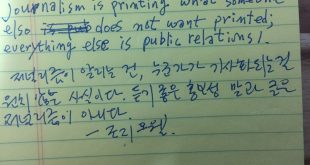 Journalism is printing what someone
else is pub does not want printed;
everything else is public relations!
저널리즘이 알리는 건, 누군가가 기사화되는 걸
원치 않는 사실이다. 듣기 좋은 홍보성 말과 글은
저널리즘이 아니다.
- 조지 오웰.